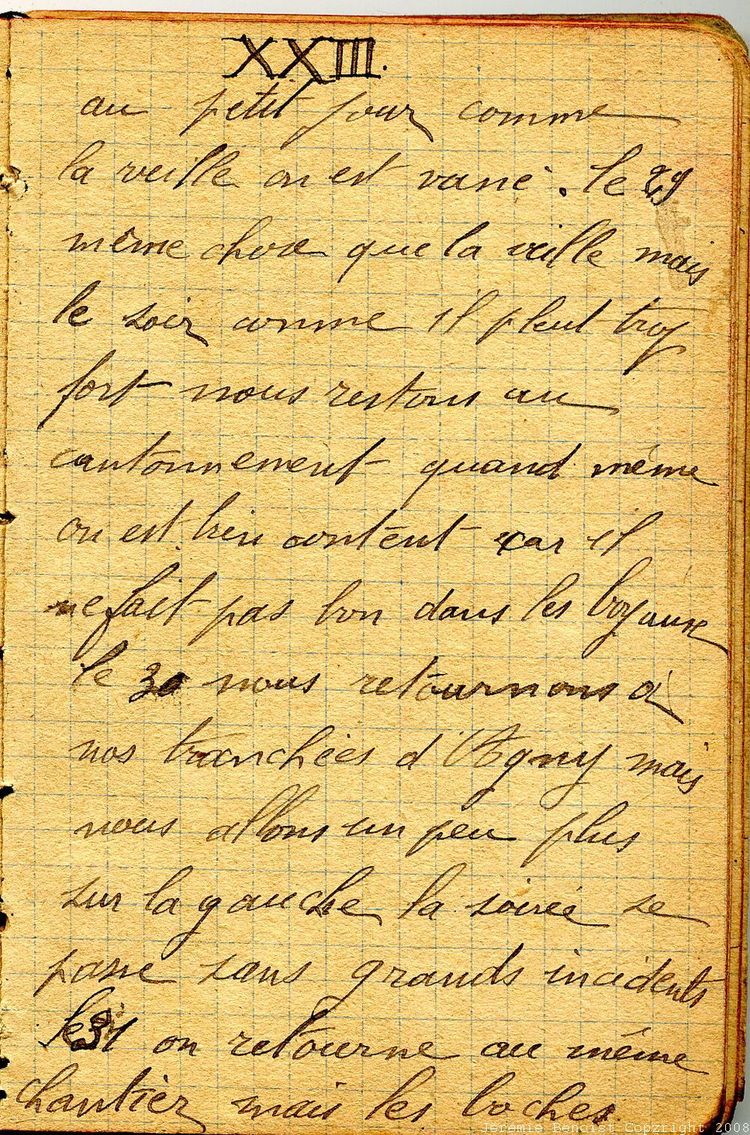 XXIII.
au petit jour comme
la veille on est vanné. le 29
même chose que la veille mais
le soir comme il pleut trop
fort nous restons au
cantonnement quand même
on est bien content car il
ne fait pas bon dans les boyaux
le 30 nous retournons à
nos tranchées d'Agny mais
nous allons un peu plus
sur la gauche la soirée se
passe sans grands incidents
le 31 on retourne au même
chantier mais les boches
Jeremie Benoist Copyright 2008